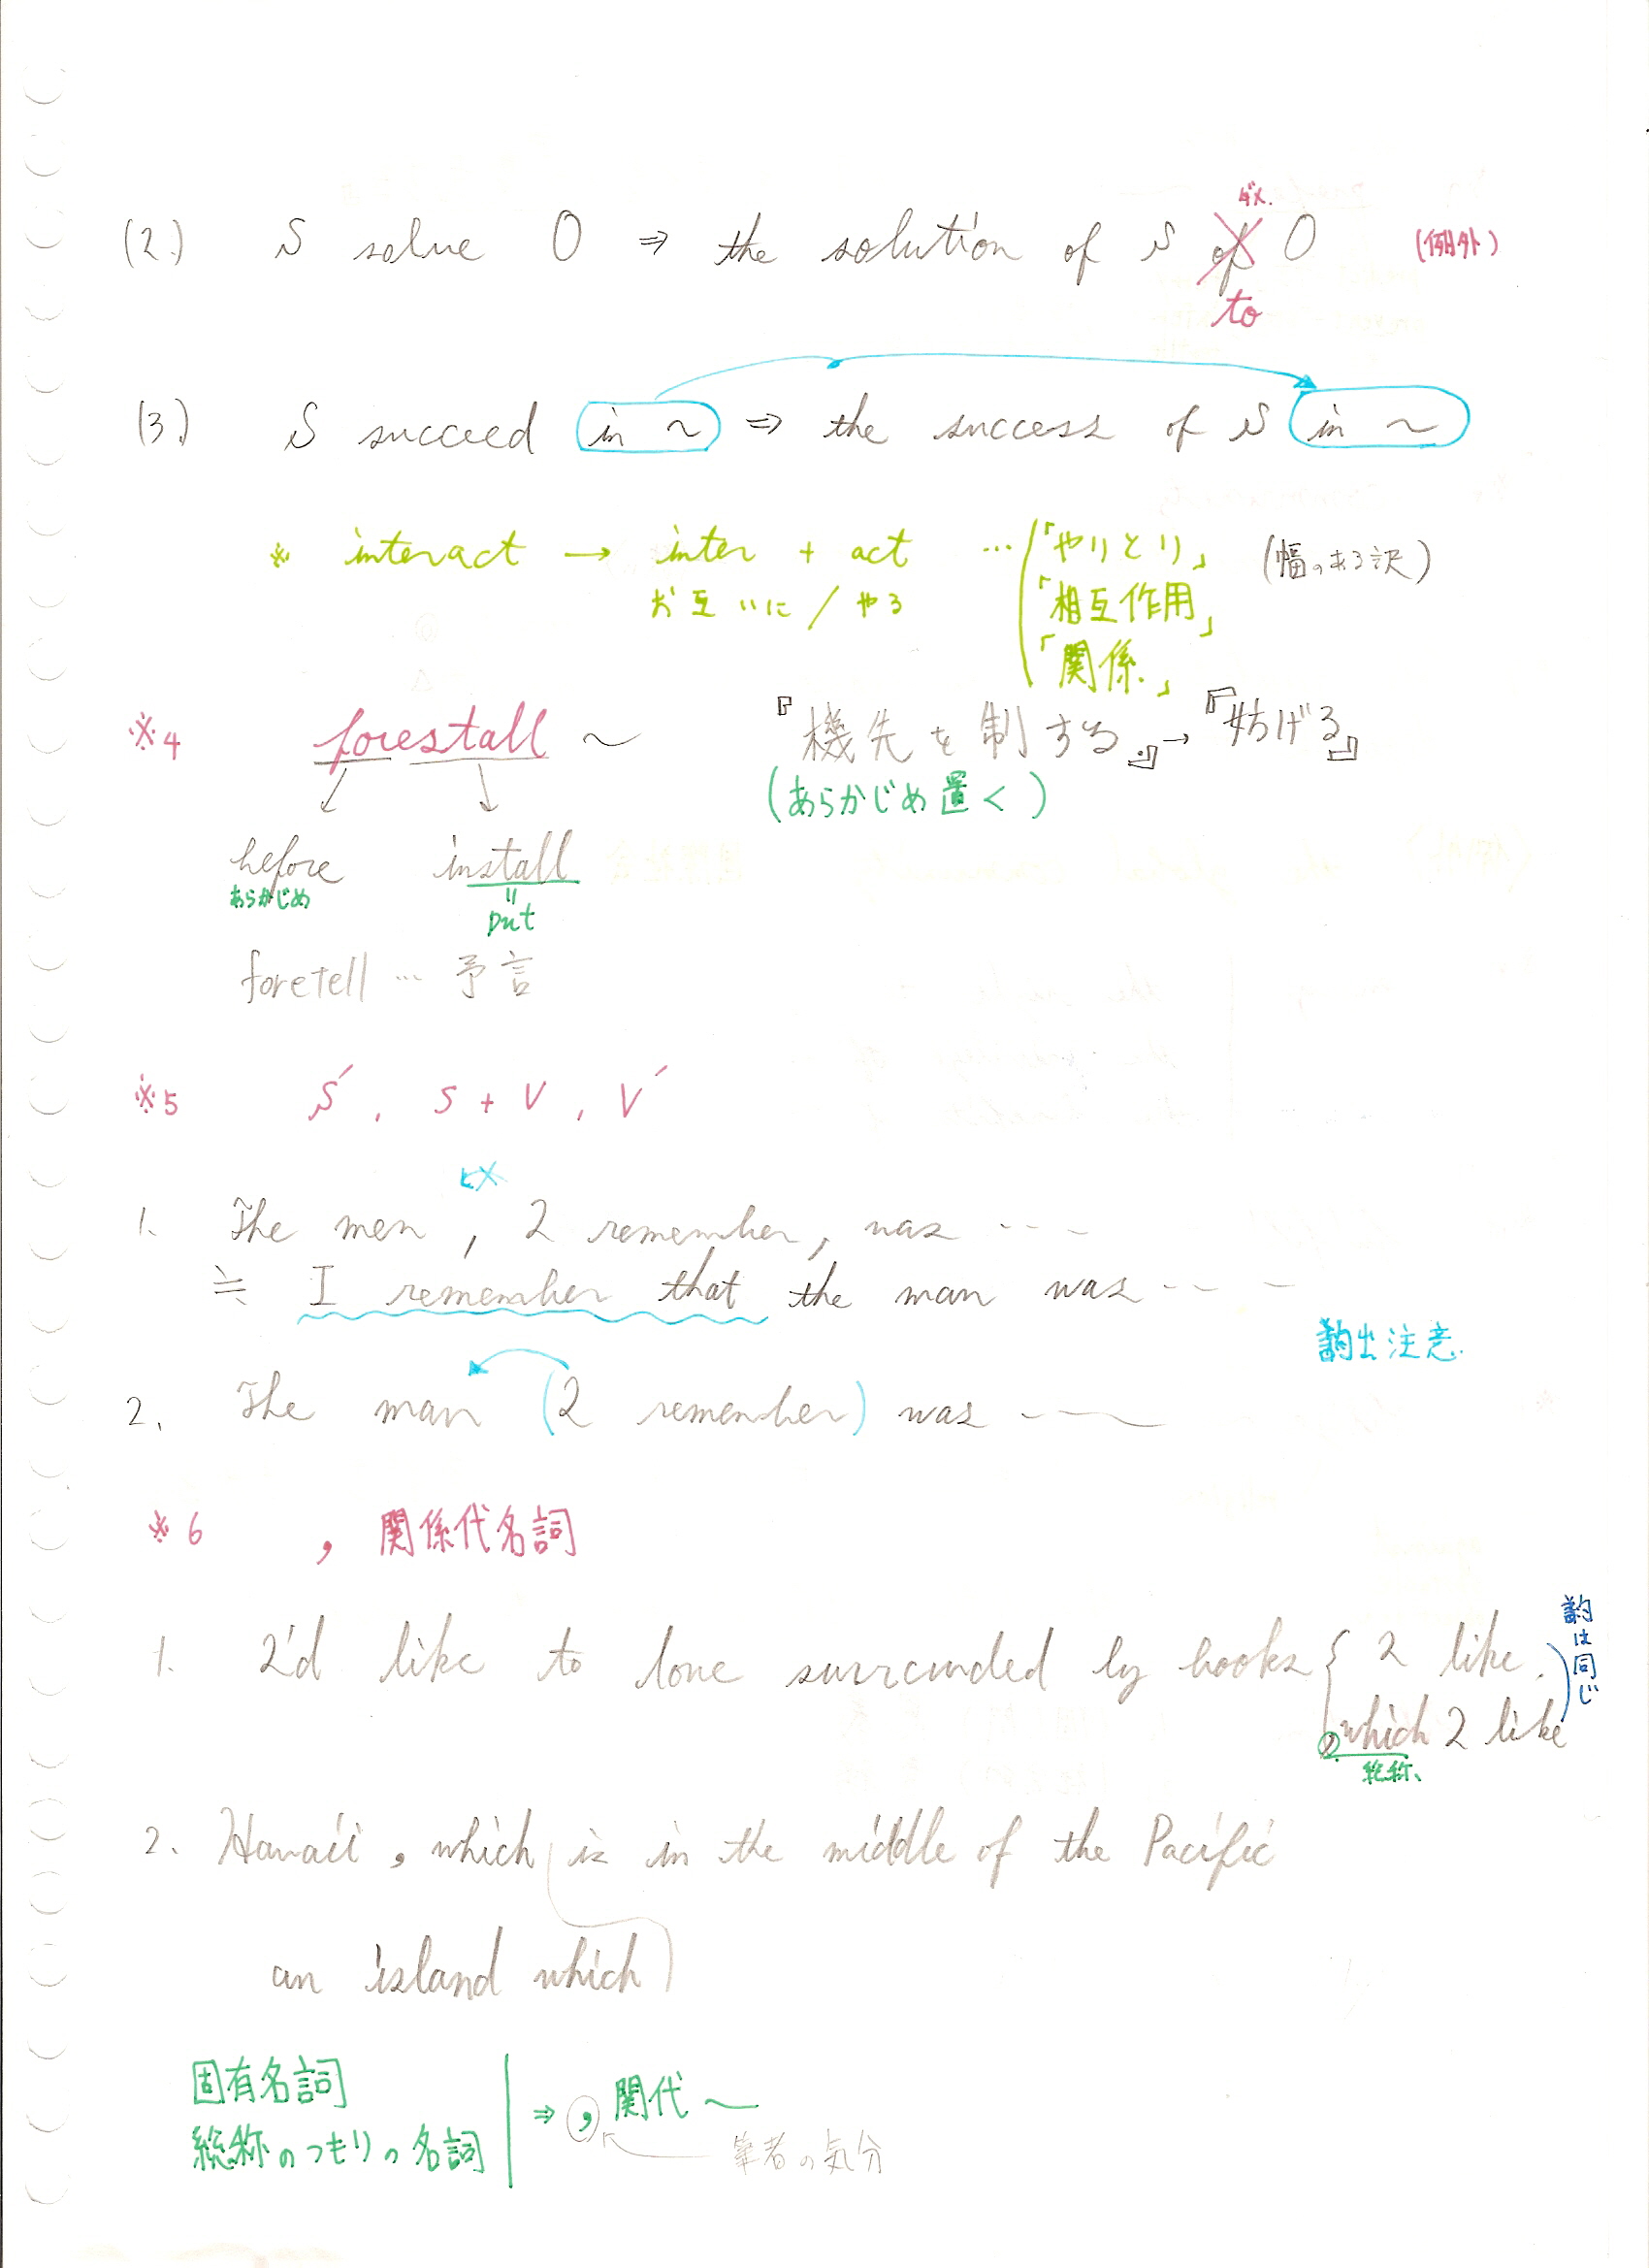 ダメ.
(2.) S solve O ⇒ the solution of S of O (例外)
to
(3.) S succeed in ~ ⇒ the success of S in ~
※ interact → inter + act … 「やりとり」 (幅のある訳)
お互いに / やる 「相互作用」
「関係」
※4 forestall ~ 『機先を制する。』→『妨げる』
(あらかじめ置く)
before install
あらかじめ = put
foretell … 予言
※5 S', S + V, V'
1. The men, I remember, was ----
≒ I remember that the man was ----
訳出注意.
2. The man (I remember) was ——
※6 , 関係代名詞
1. I'd like to love surrounded by books { I like.
, which I like
訳は同じ
総称、
2. Hawaii, which is in the middle of the Pacific
an island which
固有名詞
総称のつもりの名詞 ⇒ , 関代 ~
筆者の気分